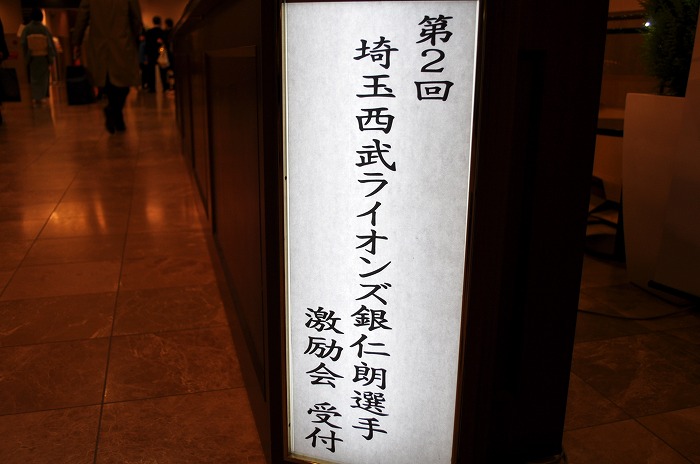 第2回
埼玉西武ライオンズ銀仁朗選手
激励会 受付